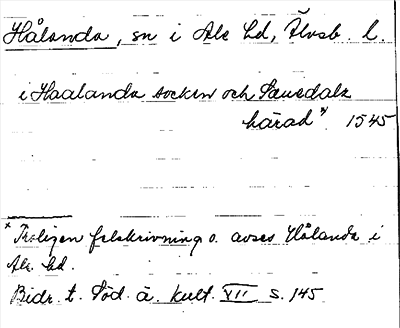 Hålanda, sn i Ale hd, Älvsb. l.
i Haalanda socken och Sæuedals
härad* 1545
* Troligen felskrivning o. avses Hålanda i
Ale hd.
Bidr. t. Söd. ä. kult. VII s. 145